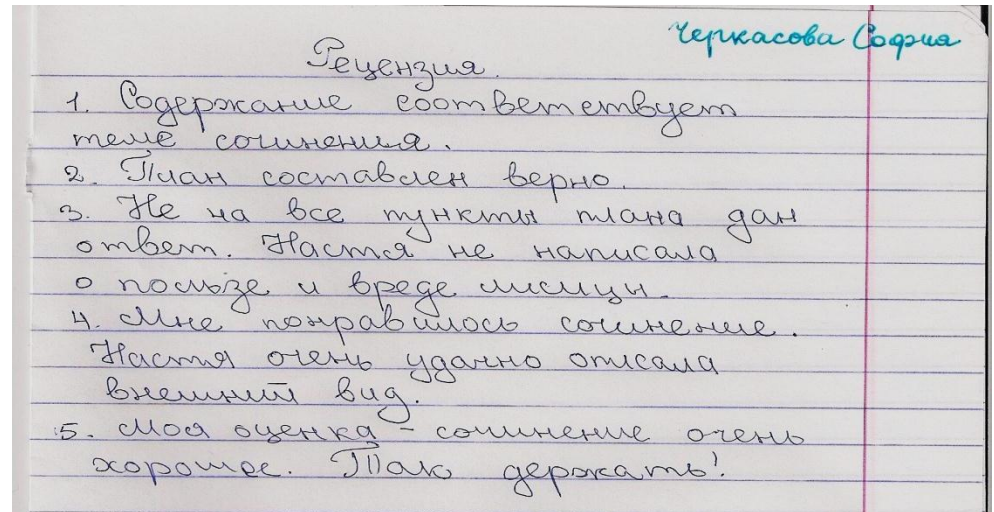 Черкасова София
Рецензия.
1. Содержание соответствует
теме сочинения.
2. План составлен верно.
3. Не на все пункты плана дан
ответ. Настя не написала
о пользе и вреде лисицы.
4. Мне понравилось сочинение.
Настя очень удачно описала
внешний вид.
5. Моя оценка - сочинение очень
хорошее. Так держать!